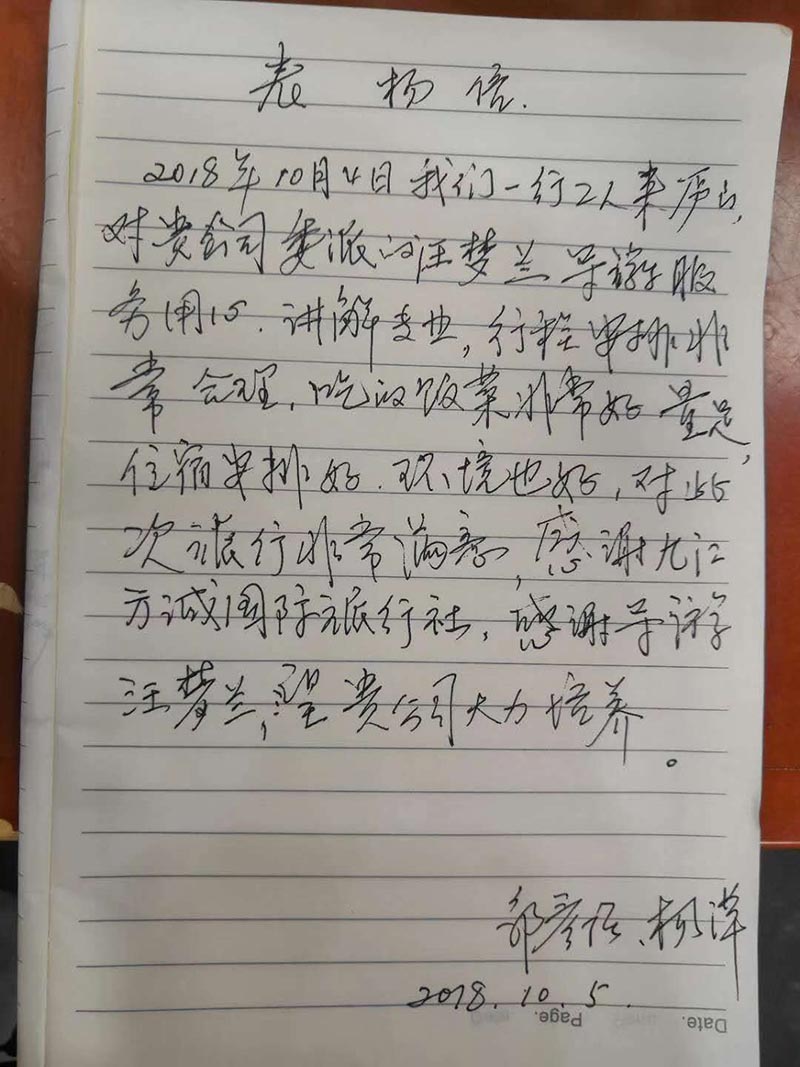 表扬信.
2018年10月4日我们一行2人来庐山,
对贵公司委派的汪梦兰导游服
务用心.讲解专业,行程安排非
常合理,吃的饭菜非常好量足,
住宿安排好.环境也好,对此
次旅行非常满意,感谢九江
方诚国际旅行社,感谢导游
汪梦兰,望贵公司大力培养。
2018.10.5.
Date. Page.